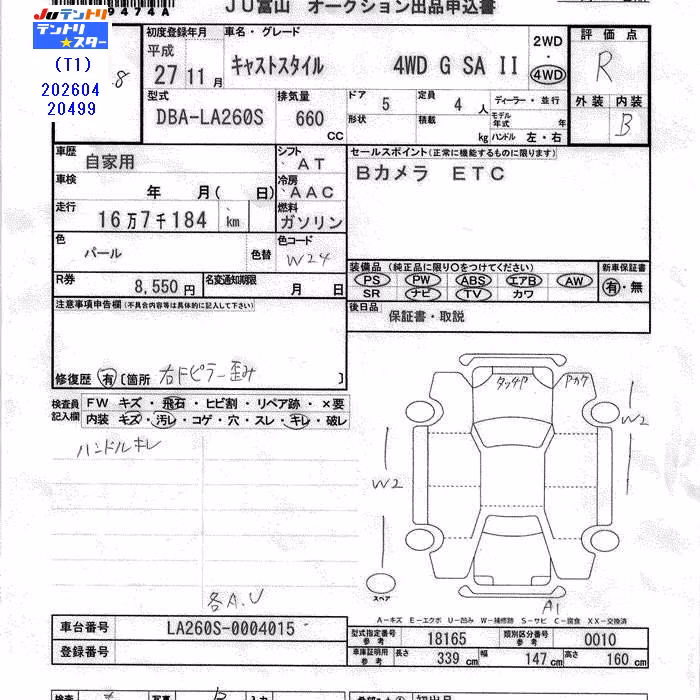 9474A
JU富山 オークション出品申込書
JUテントリ
テントリ★スター
(T1)
202604
20499
8
初度登録年月
平成
27 11月
車名・グレード
キャストスタイル 4WD G SA II
2WD
・
4WD
評価点
R
型式
DBA-LA260S
排気量
660
CC
ドア 5
形状
定員 4 人
積載 kg
ディーラー・並行
モデル年式 年
ハンドル 左・右
外装 内装
B
車歴
自家用
シフト
AT
セールスポイント(正常に機能するものに限ります)
Bカメラ ETC
車検
年 月( 日)
冷房
AAC
走行
16万7千184 km
燃料
ガソリン
色
パール
色替
色コード
W24
R券
8,550円
名変通知期限
月 日
装備品 (純正品に限り○をつけてください)
PS PW ABS エアB AW
SR ナビ TV カワ
新車保証書
有・無
注意事項申告欄(不具合内容等は具体的に記入して下さい)
後日品
保証書・取説
修復歴 有 〔箇所 右Fピラー歪み 〕
検査員記入欄
FW キズ・飛石・ヒビ割・リペア跡・×要
内装 キズ・汚レ・コゲ・穴・スレ・キレ・破レ
ハンドルキレ
タッチア
W2
W2
スペア
各A.U
A1
A−キズ E−エクボ U−凹み W−補修跡 S−サビ C−腐食 XX−交換済
車台番号
LA260S-0004015
登録番号
型式指定番号参考
18165
類別区分番号参考
0010
車庫証明用参考
長さ 339 cm
幅 147 cm
高さ 160 cm